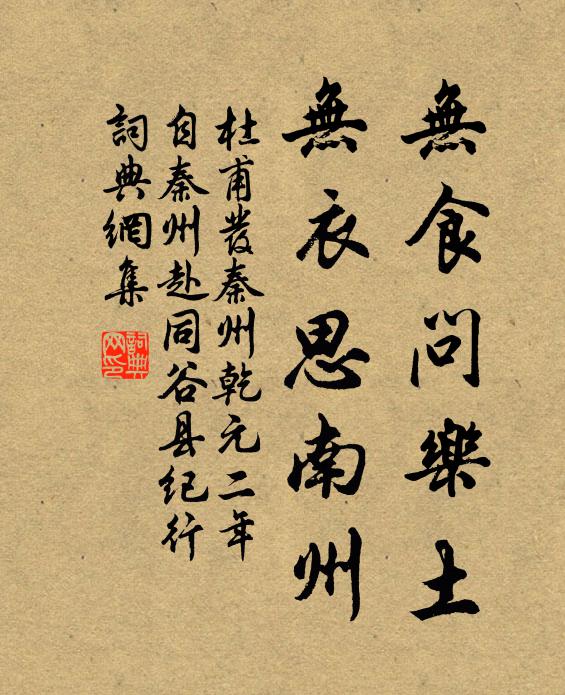 無食問樂土
無衣思南州
杜甫發秦州乾元二年
自秦州赴同谷县纪行
詞典網集
詞典
网印